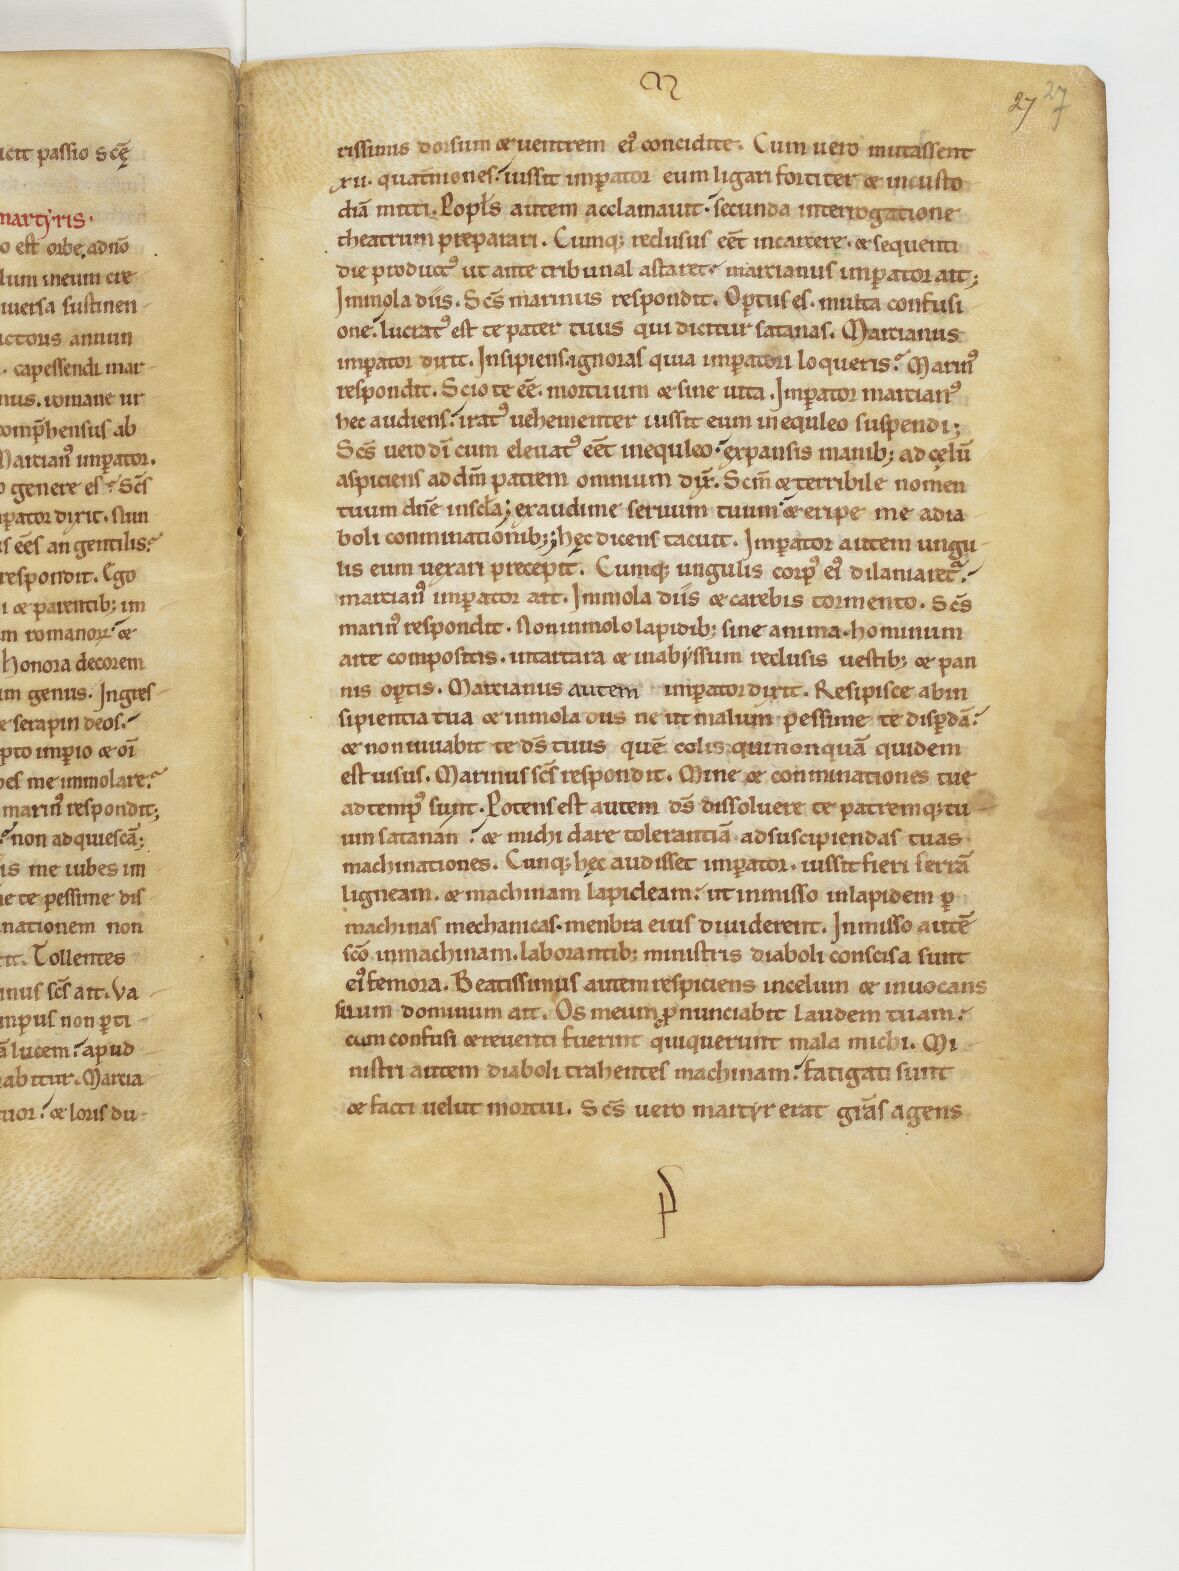 ıcit passio scę
martyris.
o est orbe. adnō
lum meum cre
iuersa sustinen
ctoris annun
. capessendi mar
nus. romane ur
omp̄hensus ab
Marcian᷒ imꝑator.
o genere es? Scs̄
ꝑator dixit. Nun
is ēēs an gentilis?
respondit. Ego
i & parentib; im
m romanoꝝ. &
honora decorem
im genus. Ingres
e serapin deos.
pto imꝑio & oī
bes me immolare?
marin᷒ respondit;
non adquiescā;
is me iubes im
ne te pessime dis
nationem non
it. Tollentes
inus scs̄ ait. Va
mpus non ꝑti
ā lucem. apud
abitur. Marcia
tuor. & loris du
M
27 27
rissimis dorsum & uentrem ei᷒ concidite. Cum uero mutassent
xii. quat̄niones. iussit imꝑator eum ligari fortiter & in custo
diā mitti. Popl̄s autem acclamauit. secunda interrogatione
theatrum preparari. Cumq; reclusus eēt incarcere. & sequenti
die product᷒ ut ante tribunal astaret. marcianus imꝑator ait;
Immola diis. Scs̄ marinus respondit. Oꝑtus es. multa confusi
one. lucrat᷒ est te pater tuus qui dicitur satanas. Marcianus
imꝑator dixit. Insipiens. ignoras quia imꝑatori loqueris? Marin᷒
respondit. Scio te eē. mortuum & sine uita. Imꝑator marcian᷒
hec audiens. irat᷒ uehementer iussit eum inequleo suspendi;
Scs̄ uero dī cum eleuat᷒ eēt inequleo. expansis manib; ad cęlū
aspiciens ad dm̄ patrem omnium dix̄. Scm̄ & terribile nomen
tuum dn̄e inscl̄a; exaudi me seruum tuum & eripe me a dia
boli conminationib; hęc dicens tacuit. Imꝑator autem ungu
lis eum uexari precepit. Cumq; ungulis corp᷒ ei᷒ dilaniaret᷑.
marcian᷒ imꝑator ait. Immola diis & carebis tormento. Scs̄
marin᷒ respondit. Non inmolo lapidib; sine anima. hominum
arte compositis. intartara & inabyssum reclusis uestib; & pan
nis oꝑtis. Marcianus autem imꝑator dixit. Resipisce ab in
sipientia tua & inmola diis ne ut malum pessime te disꝑdā.
& non iuuabit te ds̄ tuus quē colis qui nonquā quidem
est uisus. Marinus scs̄ respondit. Mine & conminationes tue
ad temp᷒ sunt. Potens est autem ds̄ dissoluere te patremq; tu
um satanan. & michi dare tolerantiā ad suscipiendas tuas
machinationes. Cunq; hęc audisset imꝑator. iussit fieri serrā
ligneam. & machinam lapideam. ut inmisso inlapidem ꝑ
machinas mechanicas. menbra eius diuiderent. Inmisso autē
scō inmachinam. laborantib; ministris diaboli conscisa sunt
ei᷒ femora. Beatissimus autem respiciens incelum & inuocans
suum dominum ait. Os meum ꝓnunciabit laudem tuam.
cum confusi & reueriti fuerint qui querunt mala michi. Mi
nistri autem diaboli trahentes machinam. fatigati sunt
& facti uelut mortui. Scs̄ uero martyr erat grās agens